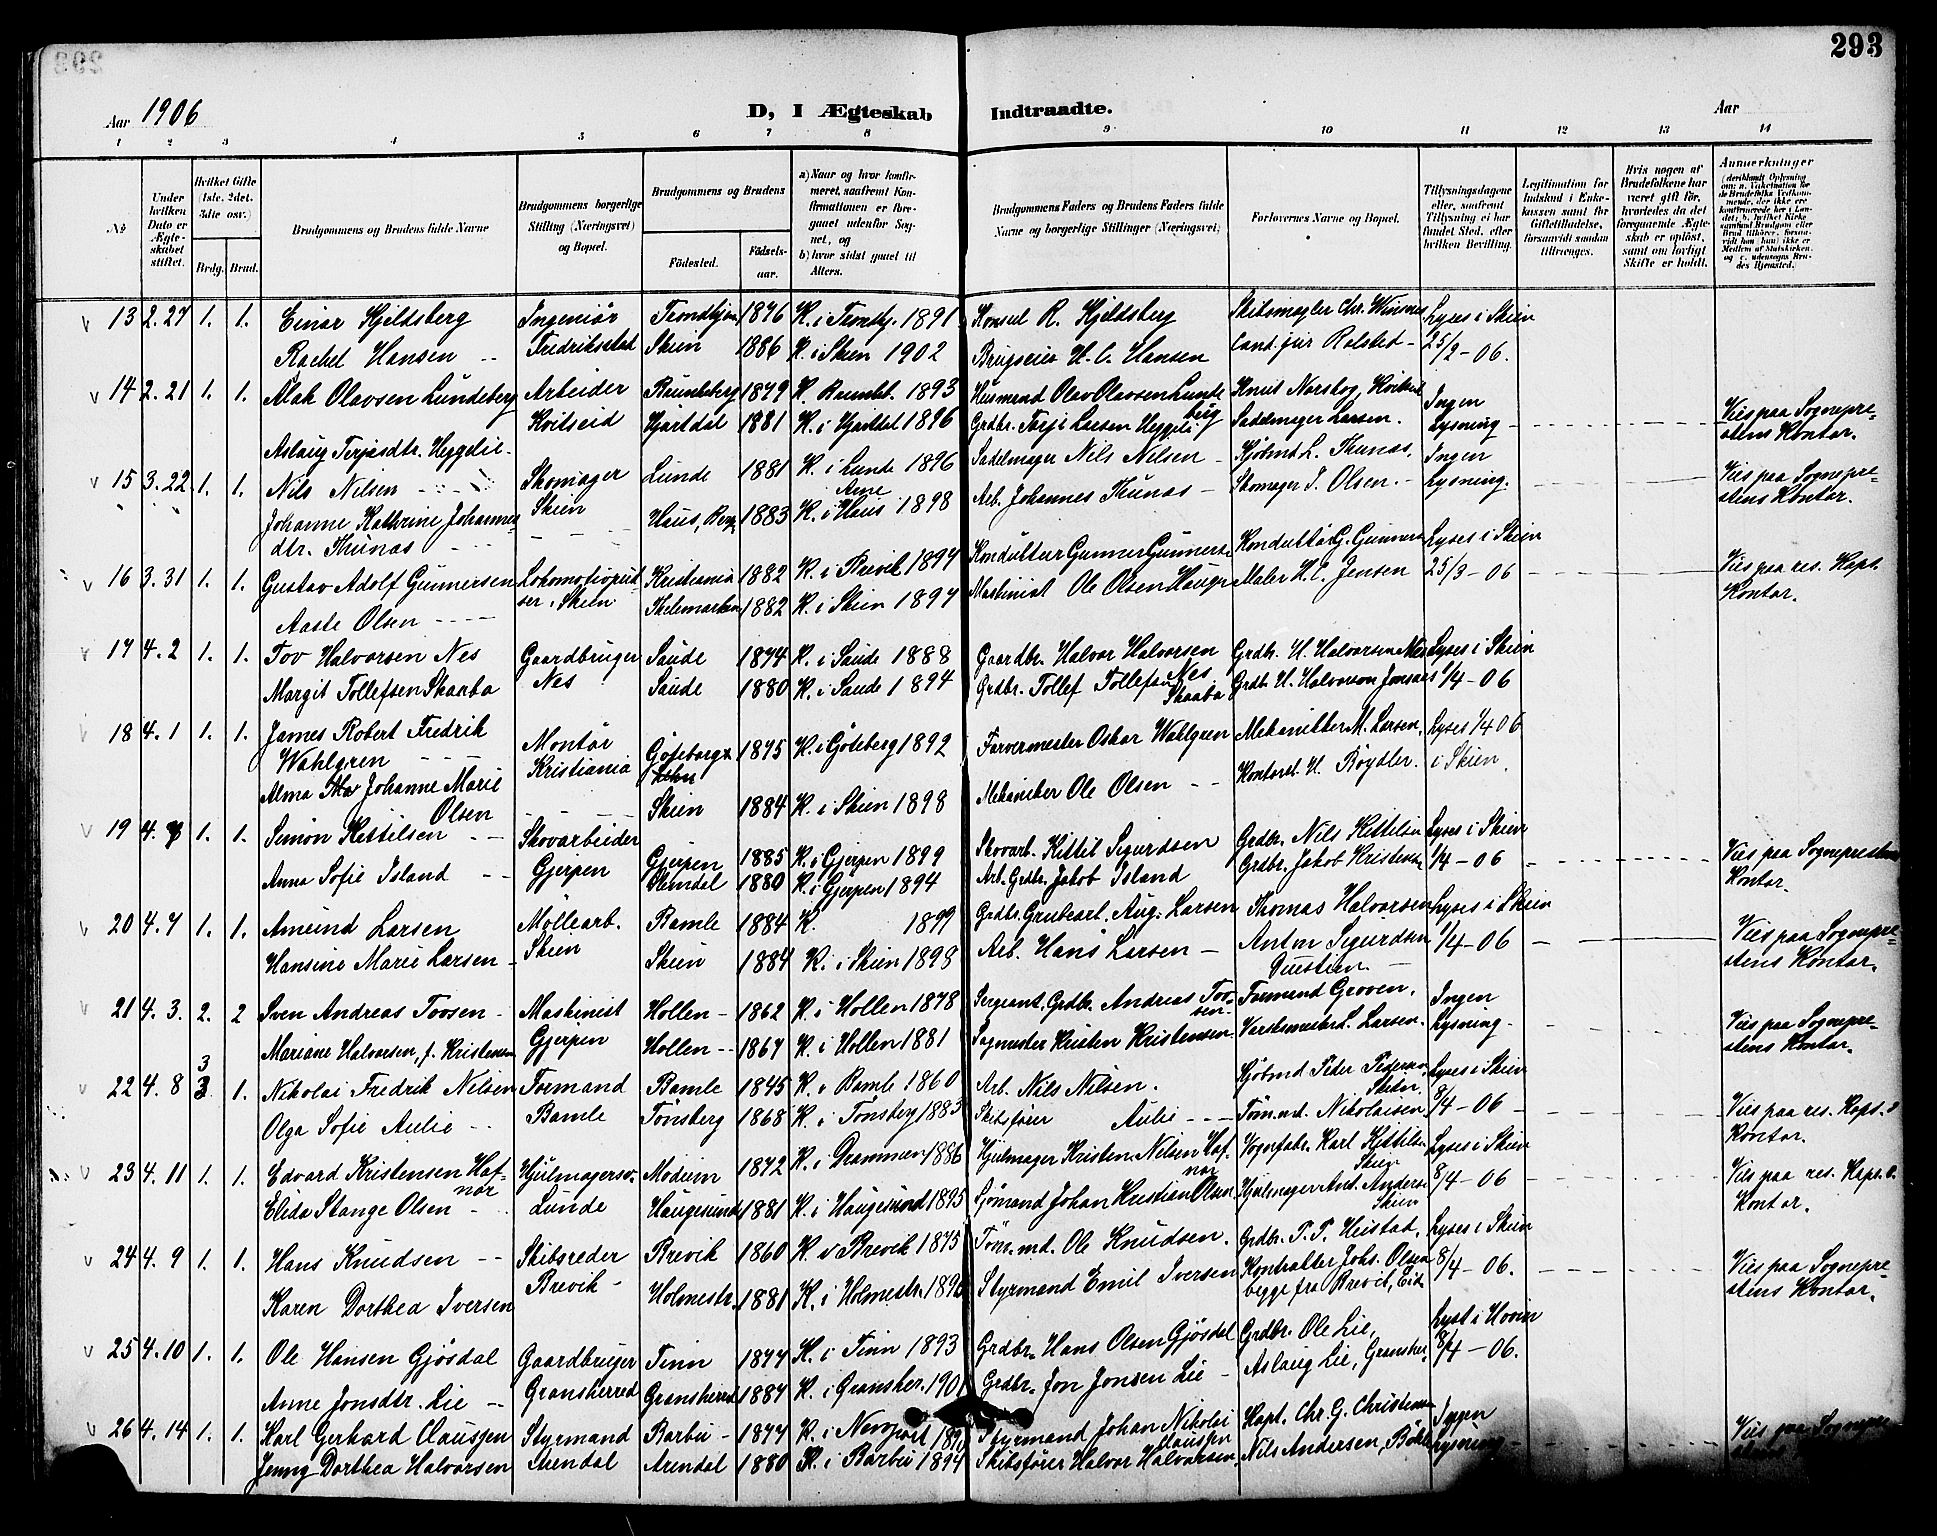 293
Aar 1906
D, I Ægteskab Indtraadte.
Aar
1 2 3 4 5 6 7 8 9 10 11 12 13 14
No
Under hvilken Dato er Ægteskabet stiftet.
Hvilket Gifte (1ste. 2det. 3die osv.)
Brdg. Brud.
Brudgommens og Brudens fulde Navne
Brudgommens borgerlige Stilling (Næringsvei) og Bopæl.
Brudgommens og Brudens
Födested. Födselsaar.
a) Naar og hvor konfirmeret, saafremt Konfirmationen er foregaaet udenfor Sognet, og
b) hvor sidst gaaet til Alters.
Brudgommens Faders og Brudens Faders fulde Navne og borgerlige Stillinger (Næringsvei)
Forlovernes Navne og Bopæl.
Tillysningsdagene eller, saafremt Tillysning ei har fundet Sted, efter hvilken Bevilling.
Legitimation for Indskud i Enkekassen samt for Giftetilladelse, forsaavidt saadan tiltrænges.
Hvis nogen af Brudefolkene har været gift för, hvorledes da det foregaaende Ægteskab er oplöst, samt om lovligt Skifte er holdt.
Anmerkninger
13 2.27 1. 1. Einar Kjeldsberg Ingeniör Trondhjem 1876 K. i Trondhj. 1891 Konsul R. Kjeldsberg Skibsmægler Chr. Winsnes Lyses i Skien
Rachel Hansen Fredrikstad Skien 1886 K. i Skien 1902 Brugseier H. C. Hansen Cand. jur Rolsted 25/2-06.
14 2.21 1. 1. Alak Olavsen Lundeberg Arbeider 1879 1893 Husmand Olav Olavsen Lundeberg Knut Norskog, Kvitseid Ingen
Aslaug Terjesdtr. Heggelie Kvitseid Hjartdal 1881 K. i Hjartdal 1896 Grdbr. Terje Larsen Heggeli Sadelmager Larsen. Lysning Vies paa Sogneprestens Kontor.
15 3.22 1. 1. Nils Nilsen Skomager Lunde 1881 K. i Lunde 1896 Sadelmager Nils Nilsen Kjöbmd L. Thunas, Ingen Vies paa Sogneprestens Kontor.
Johanne Kathrine Johannesdtr. Thunas Skien Haus, Berg. 1883 K. i Arne Haus 1898 Arb. Johannes Thunas Skomager T. Olsen. Lysning.
16 3.31 1. 1. Gustav Adolf Gunnersen Lokomotivpudser, Skien Kristiania 1882 K. i Brevik 1897 Konduktör Gunner Gunnersen Konduktör G. Gunnersen Lyses i Skien Vies paa res. Kaps. Kontor.
Aaste Olsen Thelemarken 1882 K. i Skien 1897 Maskinist Ole Olsen Hauge Maler H. C. Jensen 25/3-06
17 4.2 1. 1. Tov Halvorsen Nes Gaardbruger Saude 1874 K. i Saude 1888 Gaardbr. Halvor Halvorsen Nes Grdbr. H. Halvorsen Nes Lyses i Skien
Margit Tollefsen Skaaba Nes Saude 1880 K. i Saude 1894 Grdbr. Tollef Tollefsen Skaaba Grdb. H. Halvorson Jonsaas 1/4-06
18 4.1 1. 1. James Robert Fredrik Wahlgren Montör Göteborg 1875 K. i Göteborg 1892 Farvermester Oskar Wahlgren Mekanikker M. Larsen, Lyses 1/4 06
Alma Johanne Marie Olsen Kristiania Skien 1884 K. i Skien 1898 Mekaniker Ole Olsen Kontorist H. Böydler. i Skien.
19 4. 1. 1. Simon Kettilsen Skovarbeider Gjerpen 1885 K. i Gjerpen 1899 Skovarb. Kittil Sigurdsen Grdbr. Nils Kittilsen Lyses i Skien
Anna Sofie Island Gjerpen 1880 K. i Gjerpen 1894 Arb. Grdbr. Jakob Island Grdbr. Jakob Kristensen 1/4-06 Vies paa Sogneprestens Kontor.
20 4.7 1. 1. Amund Larsen Möllearb. Bamle 1884 K. 1899 Grdbr. Grubearb. Aug. Larsen Thomas Halvorsen Lyses i Skien
Hansine Marie Larsen Skien Skien 1884 K. i Skien 1898 Arb. Hans Larsen Anton Sigurdsen 1/4-06 Vies paa Sogneprestens Kontor.
21 4.3. 2. 2 Sven Andreas Tovsen Maskinist Hollen 1862 K. i Hollen 1878 Sergeant. Grdbr. Andreas Tovsen Formand Groven. Ingen
Mariane Halvorsen, f. Kristensen Gjerpen Hollen 1867 K. i Hollen 1881 Kristen Kristensen Larsen. Lysning Vies paa Sogneprestens Kontor.
22 4.8 3 1. Nikolai Fredrik Nielsen Formand Bamle 1845 K. i Bamle 1860 Arb. Nils Nilsen. Kjöbmd Peder Pedersen, Skien. Lyses i Skien
Olga Sofie Aulie Bamle Tönsberg 1868 K. i Tönsberg 1883 Skibsförer Aulie Töm.md. Nikolaisen 8/4-06 Vies paa res. Kaps. Kontor.
23 4.11 1. 1. Edvard Kristensen Hafnor Hjulmagersv. Modum 1872 K. i Drammen 1886 Hjulmager Kristen Nelsen Hafnor Vognfabr. Karl Kittilsen Skien Lyses i Skien
Elida Stange Olsen Lunde Haugesund 1881 K. i Haugesund 1895 Sjömand Johan Kristian Olsen Hjulmager And. Andersen Skien 8/4-06 Vies paa res. Kaps. Kontor.
24 4.9 1. 1. Hans Knudsen Skibsreder Brevik 1860 K. i Brevik 1875 Töm.md. Ole Knudsen. Grdbr. T. T. Heistad, Lyses i Skien
Karen Dorthea Iversen Brevik Holmestr. 1881 K. i Holmestr. 189 Styrmand Emil Iversen Kontraktör Johs. Olsen begge fra Brevik, 8/4-06. Vies paa Sogneprestens Kontor.
25 4.10 1. 1. Ole Hansen Gjösdal Gaardbruger Tinn 1877 K. i Tinn 1893 Grdbr. Hans Olsen Gjösdal Grdbr. Ole Lie, Lyst i Hovin
Anne Jonsdtr. Lie Gransherred Gransherred 1884 K. i Gransher. 1901 Grdbr. Jon Jonsen Lie Aslaug Lie, Gransher. 8/4-06.
26 4.14 1. 1. Karl Gerhard Claussen Styrmand Barbu 1877 K. i Newport 189 Styrmand Johan Nikolai Claussen Kapt. Chr. G. Christensen Ingen
Jenny Dorthea Halvorsen Arendal Arendal 1880 K. i Barbu 1894 Skibsförer Halvor Halvorsen Nils Andersen, Lysning Vies paa Sogneprestens